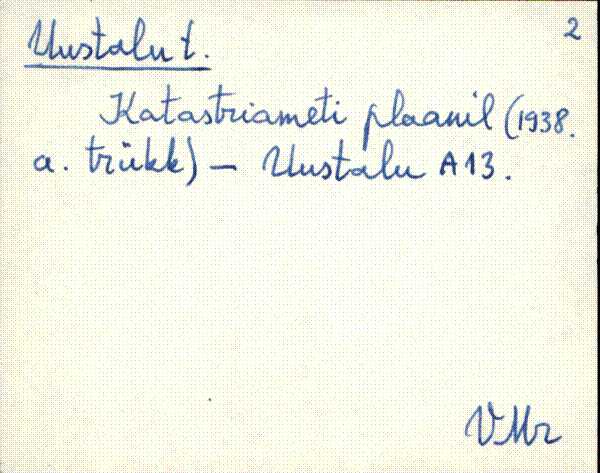 2
Uustalu t.
Katastriameti plaanil (1938.
a. trükk) – Uustalu A13.
VMr